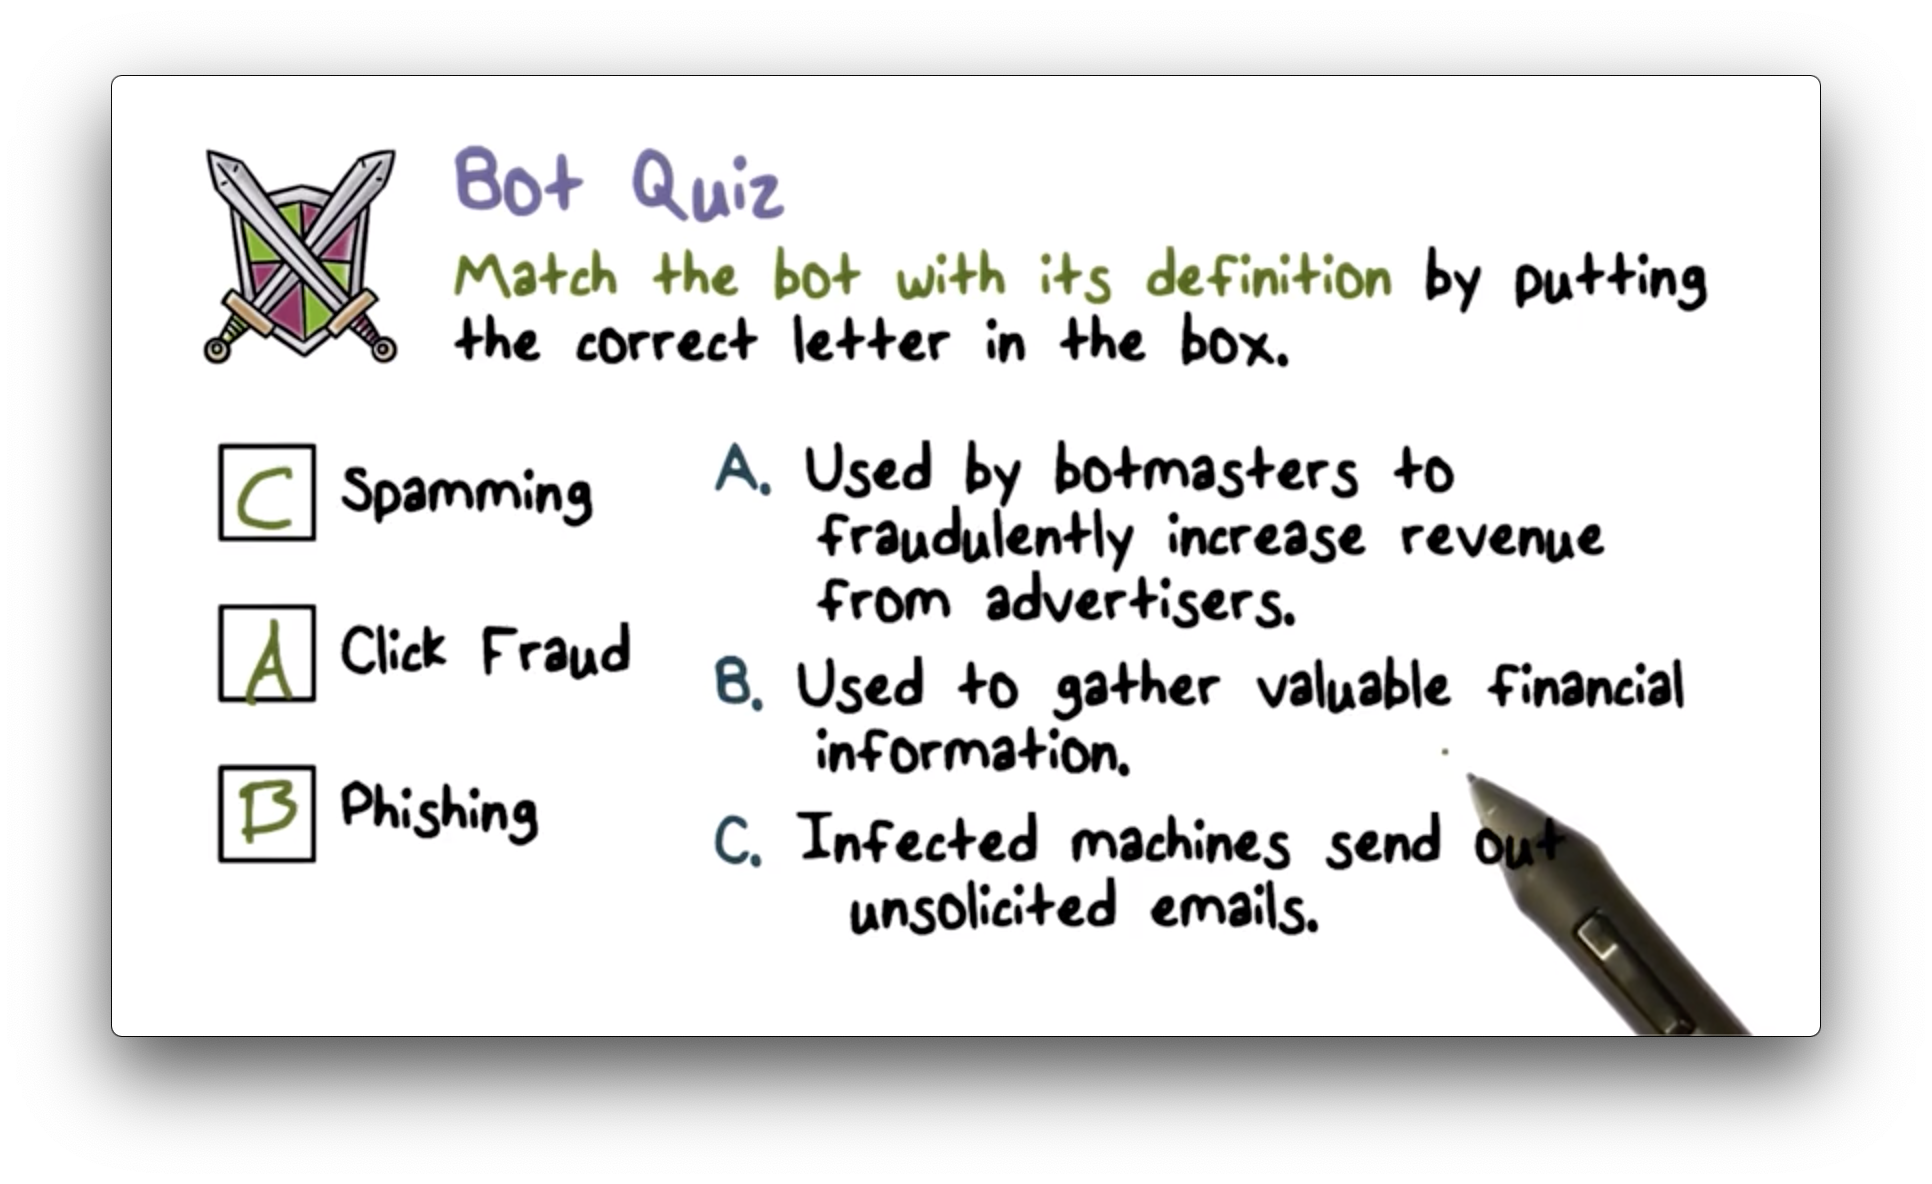 Bot Quiz
Match the bot with its definition by putting
the correct letter in the box.
C Spamming
A Click Fraud
B Phishing
A. Used by botmasters to
fraudulently increase revenue
from advertisers.
B. Used to gather valuable financial
information.
C. Infected machines send out
unsolicited emails.